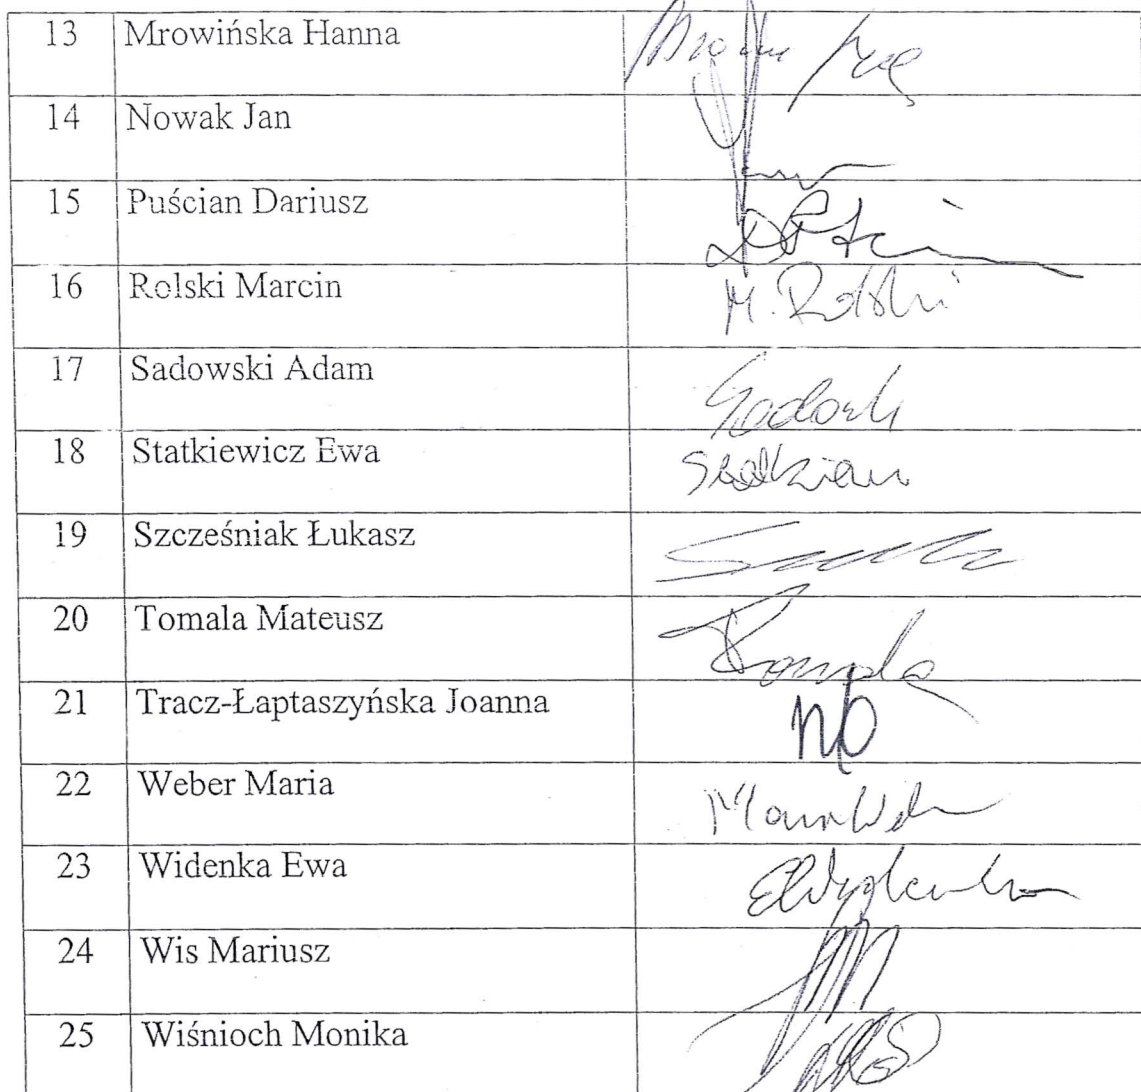 13 Mrowińska Hanna
14 Nowak Jan
15 Puścian Dariusz
16 Rolski Marcin M. Rolski
17 Sadowski Adam
18 Statkiewicz Ewa
19 Szcześniak Łukasz
20 Tomala Mateusz Tomala
21 Tracz-Łaptaszyńska Joanna nb
22 Weber Maria
23 Widenka Ewa EWidenka
24 Wis Mariusz
25 Wiśnioch Monika